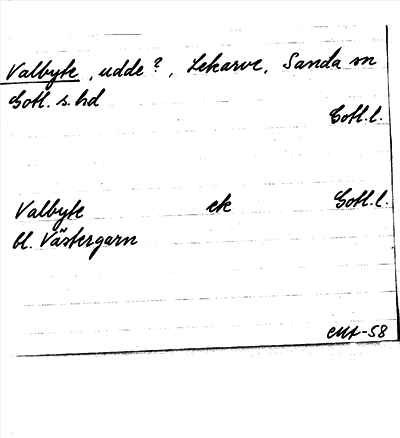 Valbyte, udde?, Lekarve, Sanda sn
Gotl. s. hd
Gotl. l.
Valbyte ek Gotl. l.
bl. Västergarn
-58